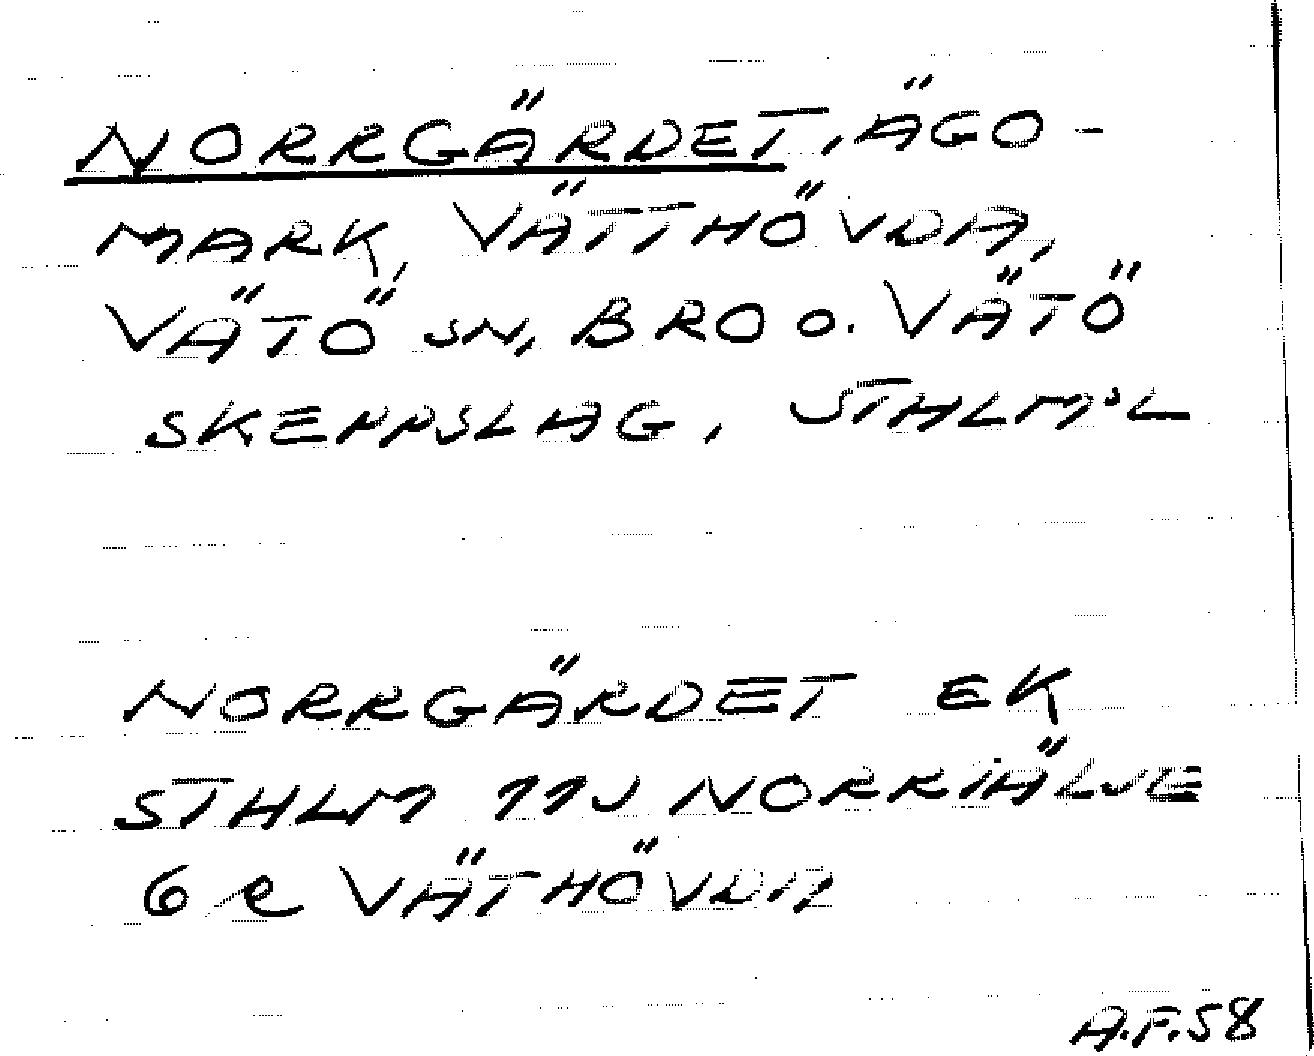 NORRGÄRDET, ÄGO-
MARK, VÄTTHÖVDA,
VÄTÖ SN, BRO O. VÄTÖ
SKEPPSLAG, STHLMSL
NORRGÄRDET EK
STHLM 11J NORRTÄLJE
6 e VÄTHÖVDA
A.F.58